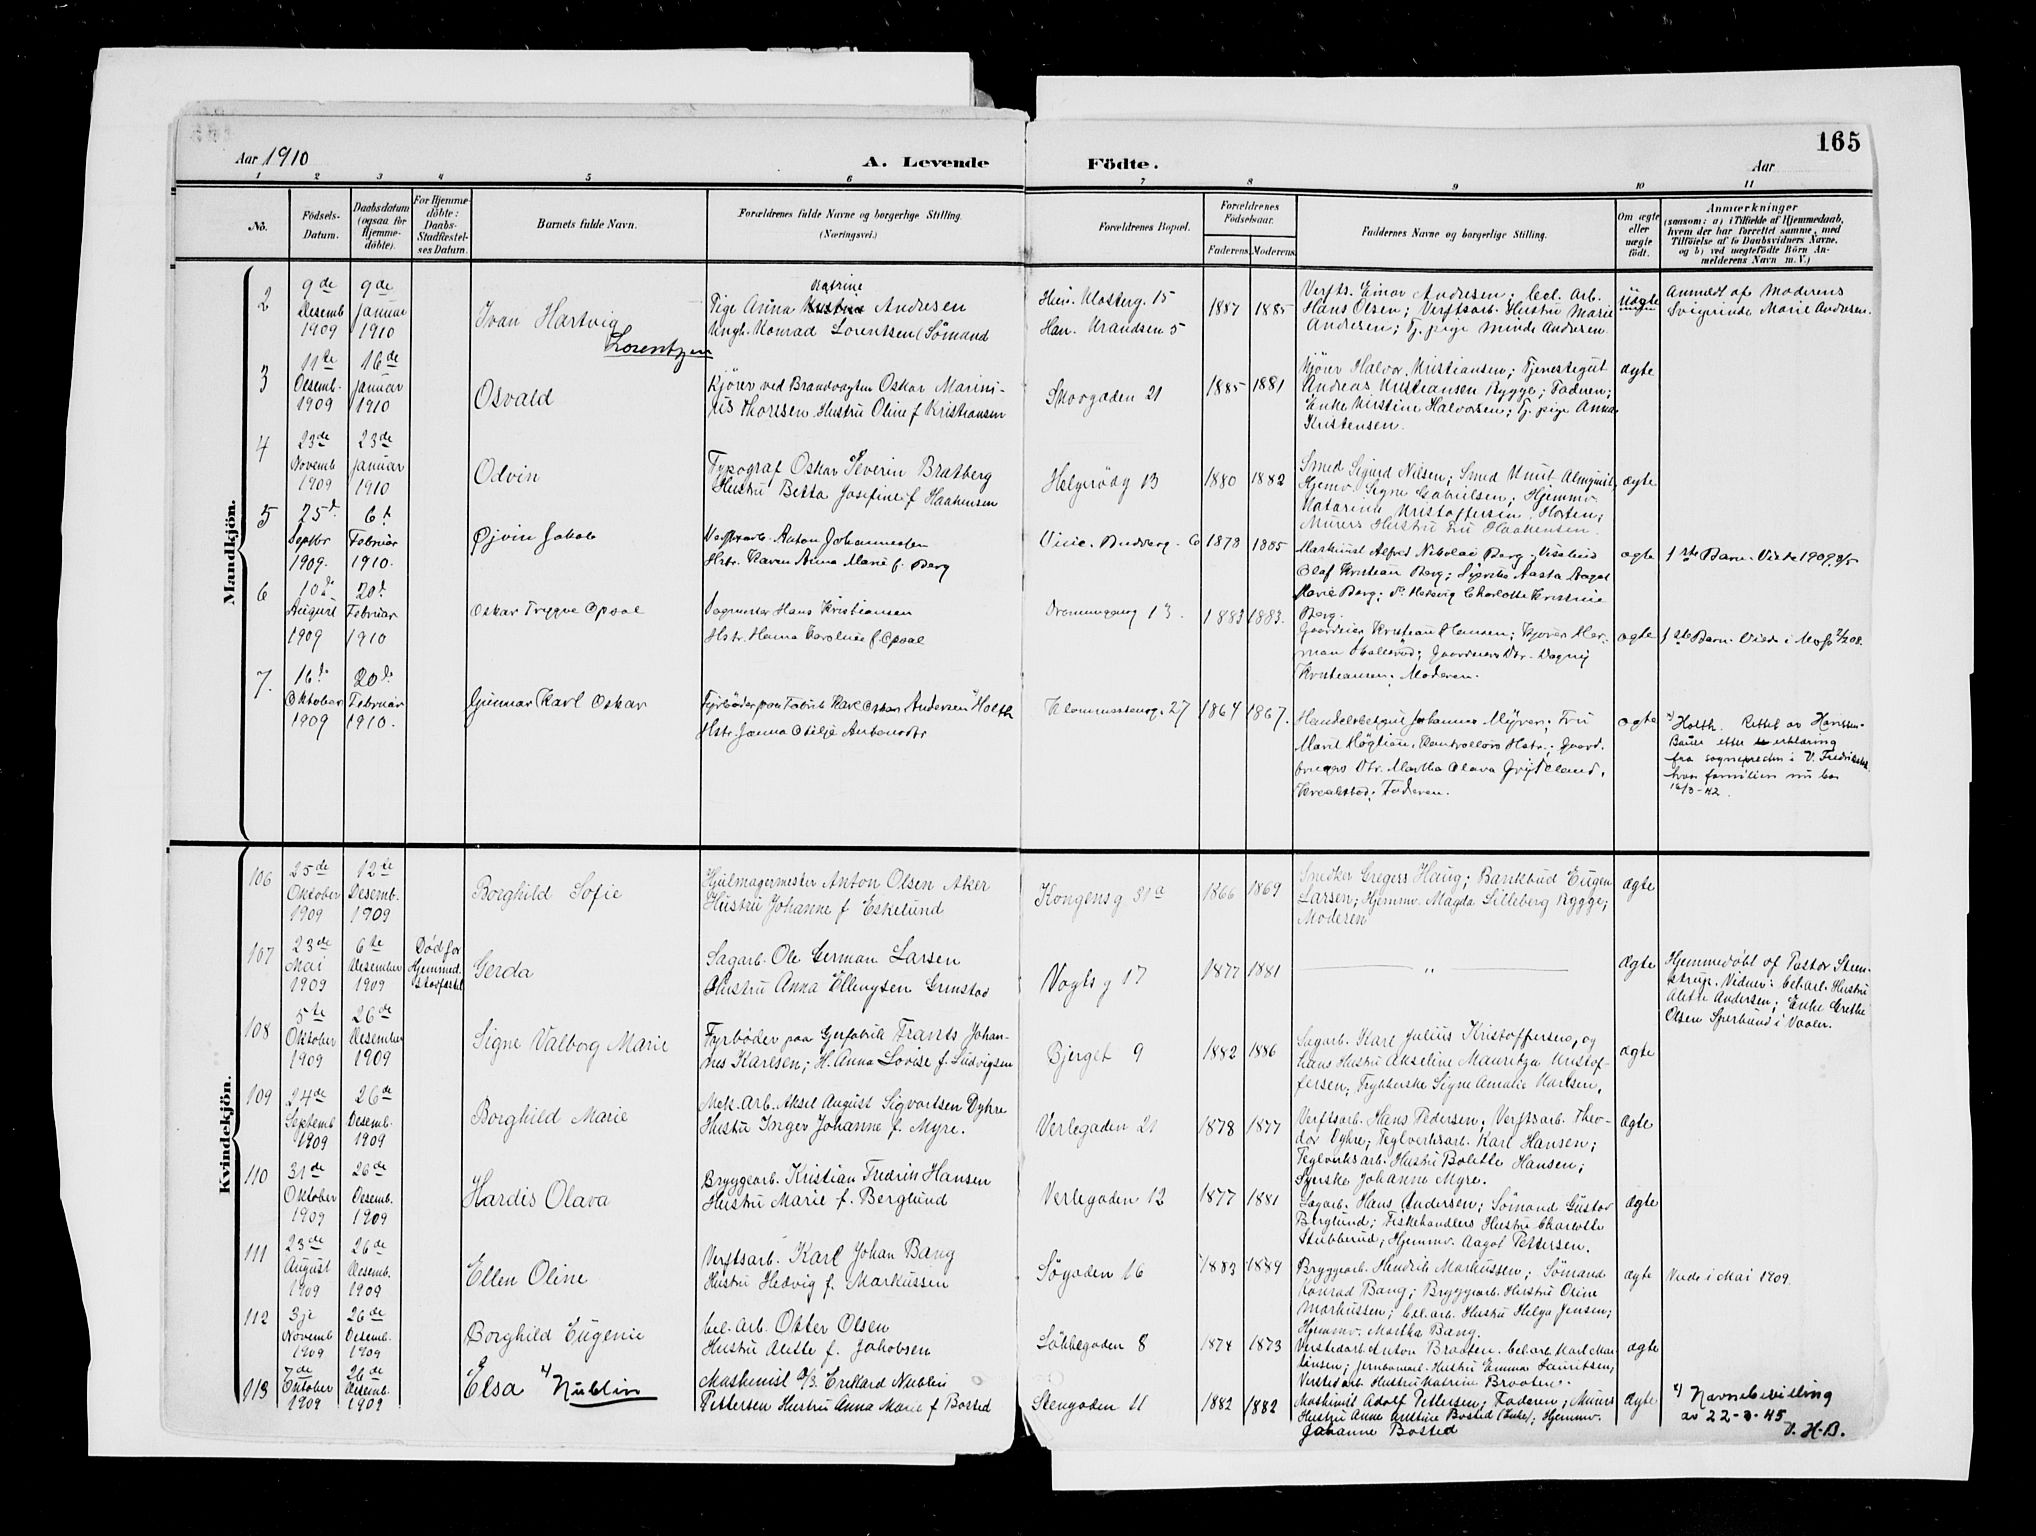 165
Aar 1910
A. Levende Födte.
Aar
1 2 3 4 5 6 7 8 9 10 11
No.
Födsels-
Datum.
Daabsdatum
(ogsaa for
Hjemme-
döbte).
For Hjemme-
döbte:
Daabs-
Stadfæstel-
ses Datum.
Barnets fulde Navn.
Forældrenes fulde Navne og borgerlige Stilling.
(Næringsvei.)
Forældrenes Bopæl.
Forældrenes
Födselsaar.
Faderens. Moderens.
Faddernes Navne og borgerlige Stilling.
Om ægte
eller
uægte
født.
Anmærkninger
(saasom: a) i Tilfælde af Hjemmedaab,
hvem der har forrettet samme, med
Tilföielse af to Daabsvidners Navne,
og b) ved uægtefödte Börn An-
melderens Navn m. V.)
Mandkjön.
2
9de
Desemb
1909
9de
Januar
1910
Ivan Hartvig
Lorentzen
Katrine
Pige Anna Andresen
Ungk. Konrad Lorentsen (Sømand
Hun. Klosterg. 15
Han. Krandsen 5
1887 1885
Verfts. Einar Andresen; bel. Arb.
Hans Olsen; Verftsarb. Hustru Marie
Andresen; Tj. pige Minda Andresen
Uægte
Anmeldt af Moderens
Svigerinde Marie Andresen.
3
11te
Desemb.
1909
16de
Januar
1910
Osvald
Kjører ved Brandvagten Oskar Marini-
us Thoresen Hustru Oline f Kristiansen
Skoggaden 21
1885 1881
Kjører Halvor Kristiansen; Tjenestegut
Andreas Kristiansen Rygge; Faderen;
Enke Kirstine Halvorsen; Tj. pige Anna
Kristensen.
ægte
4
23de
Novemb
1909
23de
Januar
1910
Odvin
Typograf Oskar Severin Bratberg
Hustru Betta Josefine f Haakensen
Helgerødg 13
1880 1882
Smed Sigurd Nilsen; Smed Knut Almquist;
Hjemv. Signe Gabrielsen; Hjemmv.
Katarina Kristoffersen Horten;
Murers Hustru Lu Haakensen
ægte
5
25de
Septbr
1909.
6te
Februar
1910.
Øjvin Jakob
Verftsarb. Anton Johannessen
Hstr. Karen Anna Marie f. Berg
6 1878 1885
Maskinist Alfred Nikolai Berg,
Olaf Kristian Berg; Syerske Aasta Aagot
Marie Berg; Do. Helsvig Charlotte Kristine
Berg.
ægte
1ste Barn. Viede 1909, 8/5
6
10de
August
1909
20de
Februar
1910
Oskar Trygve Opsal
Vogmester Hans Kristiansen
Hstr. Hanna Karoline f. Opsal
Dronningensg 13.
1883 1883.
Gaardeier Kristian Hansen; Kjører Her-
man Skallerud; Gaardeiers Dtr. Dagny
Kristiansen; Moderen.
ægte
1ste Barn. Viede i Moss 7/2 08.
7.
16de
Oktober
1909
20de
Februar
1910.
Gunnar Karl Oskar
Fyrbøder paa Fabrik Karl Oskar Andersen Holth
Hstr. Janna Otilje Antonsdtr
27 1864 1867.
Handelsbetjent Johannes Myrer; Fru
Marit Høgtian, Kontrollørs Hstr.; Gaard-
brugers Dtr. Martha Olava Grydeland,
Faderen.
ægte
x) Holth. Rettet av Harissen-
Bauer efter erklæring
fra sognepresten i V. Fredrikstad
hvor familien nu bor
16/3-42.
Kvindekjön.
106
25de
Oktober
1909
12te
Desemb.
1909
Borghild Sofie
Hjulmagermester Anton Olsen Aker
Hustru Johanne f Eskelund
Kongensg 31a
1866 1869
Snedker Gregers Haug; Bankbud Eugen
Larsen; Hjemmv. Magda Lilleberg Rygge;
Moderen
ægte
107
23de
Mai
1909
6te
Desember
1909
Død før
Hjemmed.
stadfæstet
Gerda
Sagarb. Ole German Larsen
Hustru Anna Ellingsen Grinstad
Vogtsg 17
1877 1881
— " —
ægte
Hjemmedøbt af Pastor Steen-
strup. Vidner: bel. arb. Hustru
Alette Andersen; Enke Grethe
Olsen Sperbund i Vaaler.
108
5te
Oktober
1909
26de
Desember
1909
Signe Valborg Marie
Fyrbøder paa Gjerfabrik Frants Johan-
nes Karlsen; H. Anna Lovise f. Ludvigsen
Bjerget 9
1882 1886
Sagarb. Karl Julius Kristoffersen, og
hans Hustru Akseline Mauritza Kristof-
fersen; Trykkerske Signe Amalie Karlsen.
ægte
109
24de
Septemb
1909
26de
Desemb.
1909
Borghild Marie
Mek. Arb. Aksel August Sigvartsen Dyhre
Hustru Inger Johanne f. Myre.
Verlegaden 21
1878 1877
Verftsarb. Hans Pedersen; Verftsarb. Theo-
dor Dyhre; Teglverksarb. Karl Hansen;
Teglverksarb. Hustru Bolette Hansen;
Syerske Johanne Myre.
ægte
110
31de
Oktober
1909
26de
Desemb.
1909
Hardis Olava
Bryggearb. Kristian Fredrik Hansen
Hustru Marie f. Berglund
Verlegaden 12
1877 1881
Sagarb. Hans Andersen; Sømand Gustav
Berglund; Fiskehandlers Hustru Charlotte
Stubberud; Hjemmv. Aagot Pettersen.
ægte
111
23de
August
1909
26de
Desemb.
1909
Ellen Oline
Verftsarb. Karl Johan Bang
Hustru Hedvig f. Markussen
Søgaden 16
1883 1889
Bryggearb. Hendrik Markussen; Sømand
Konrad Bang; Bryggearb. Hustru Oline
Markussen; bel. arb. Hustru Helga Jensen;
Hjemmv. Martha Bang.
ægte
Viede i Mai 1909.
112
3je
Novemb
1909
26de
Desemb.
1909
Borghild Eugenie
bel. Arb. Otter Olsen
Hustru Anette f. Jakobsen
Løkkegaden 8
1874 1873
Verstedarb. Anton Braaten. bel. arb. Karl Mar-
tinsen; Jernbanearb. Hustru Emma Lauritsen;
Verstedarb. Hustru Katrine Braaten.
ægte
113
7de
Oktober
1909
26de
Desemb.
1909
Elsa x) Nublin
Maskinist Erikard Nublin
Pettersen Hustru Anna Marie f Bosted
Stengaden 11
1882 1882
Maskinist Adolf Pettersen; Faderen; Murers
Hustru Anne Kristine Bosted (Enke); Hjemmv.
Johanne Bosted
ægte
x) Navnebevilling
av 22-3-45
V. H-B.